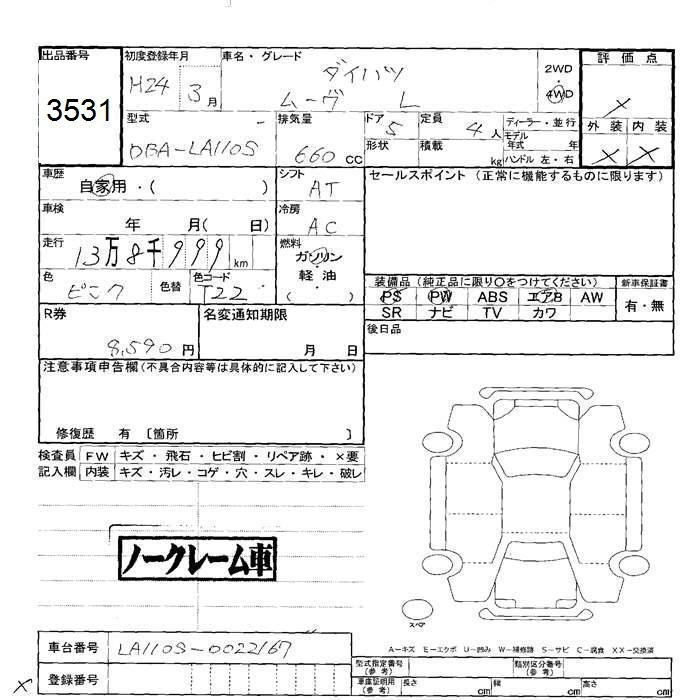 出品番号
3531
初度登録年月
H24 3月
車名・グレード
ダイハツ
ムーヴ L
2WD
4WD
評価点
×
外装 内装
× ×
型式
DBA-LA110S
排気量
660 CC
ドア 5
形状
定員 4人
積載 kg
ディーラー・並行
モデル年式 年
ハンドル 左・右
車歴
自家用・( )
シフト
AT
セールスポイント (正常に機能するものに限ります)
車検
年 月( 日)
冷房
AC
走行
13万8千999km
燃料
ガソリン
・
軽油
( )
色
ピンク
色替
色コード
T22
装備品(純正品に限り○をつけてください)
PS PW ABS エアB AW
SR ナビ TV カワ
新車保証書
有・無
R券
8,590 円
名変通知期限
月 日
後日品
注意事項申告欄(不具合内容等は具体的に記入して下さい)
修復歴 有 〔箇所 〕
検査員 FW キズ・飛石・ヒビ割・リペア跡・×要
記入欄 内装 キズ・汚レ・コゲ・穴・スレ・キレ・破レ
ノークレーム車
スペア
A-キズ E-エクボ U-凹み W-補修跡 S-サビ C-腐食 XX-交換済
車台番号 LA110S-0022167
登録番号
×
型式指定番号(参考)
類別区分番号(参考)
車庫証明用(参考) 長さ cm 幅 cm 高さ cm